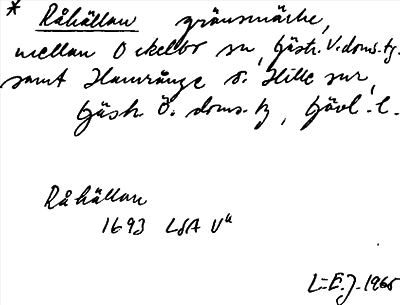 * Råhällan gränsmärke,
mellan Ockelbo sn, Gästr. V. doms. tg.
samt Hamrånge o. Hille snr,
Gästr. Ö. doms. tg, Gävl. l.
Råhällan
1693 LSA V"
L-E. J. 1965